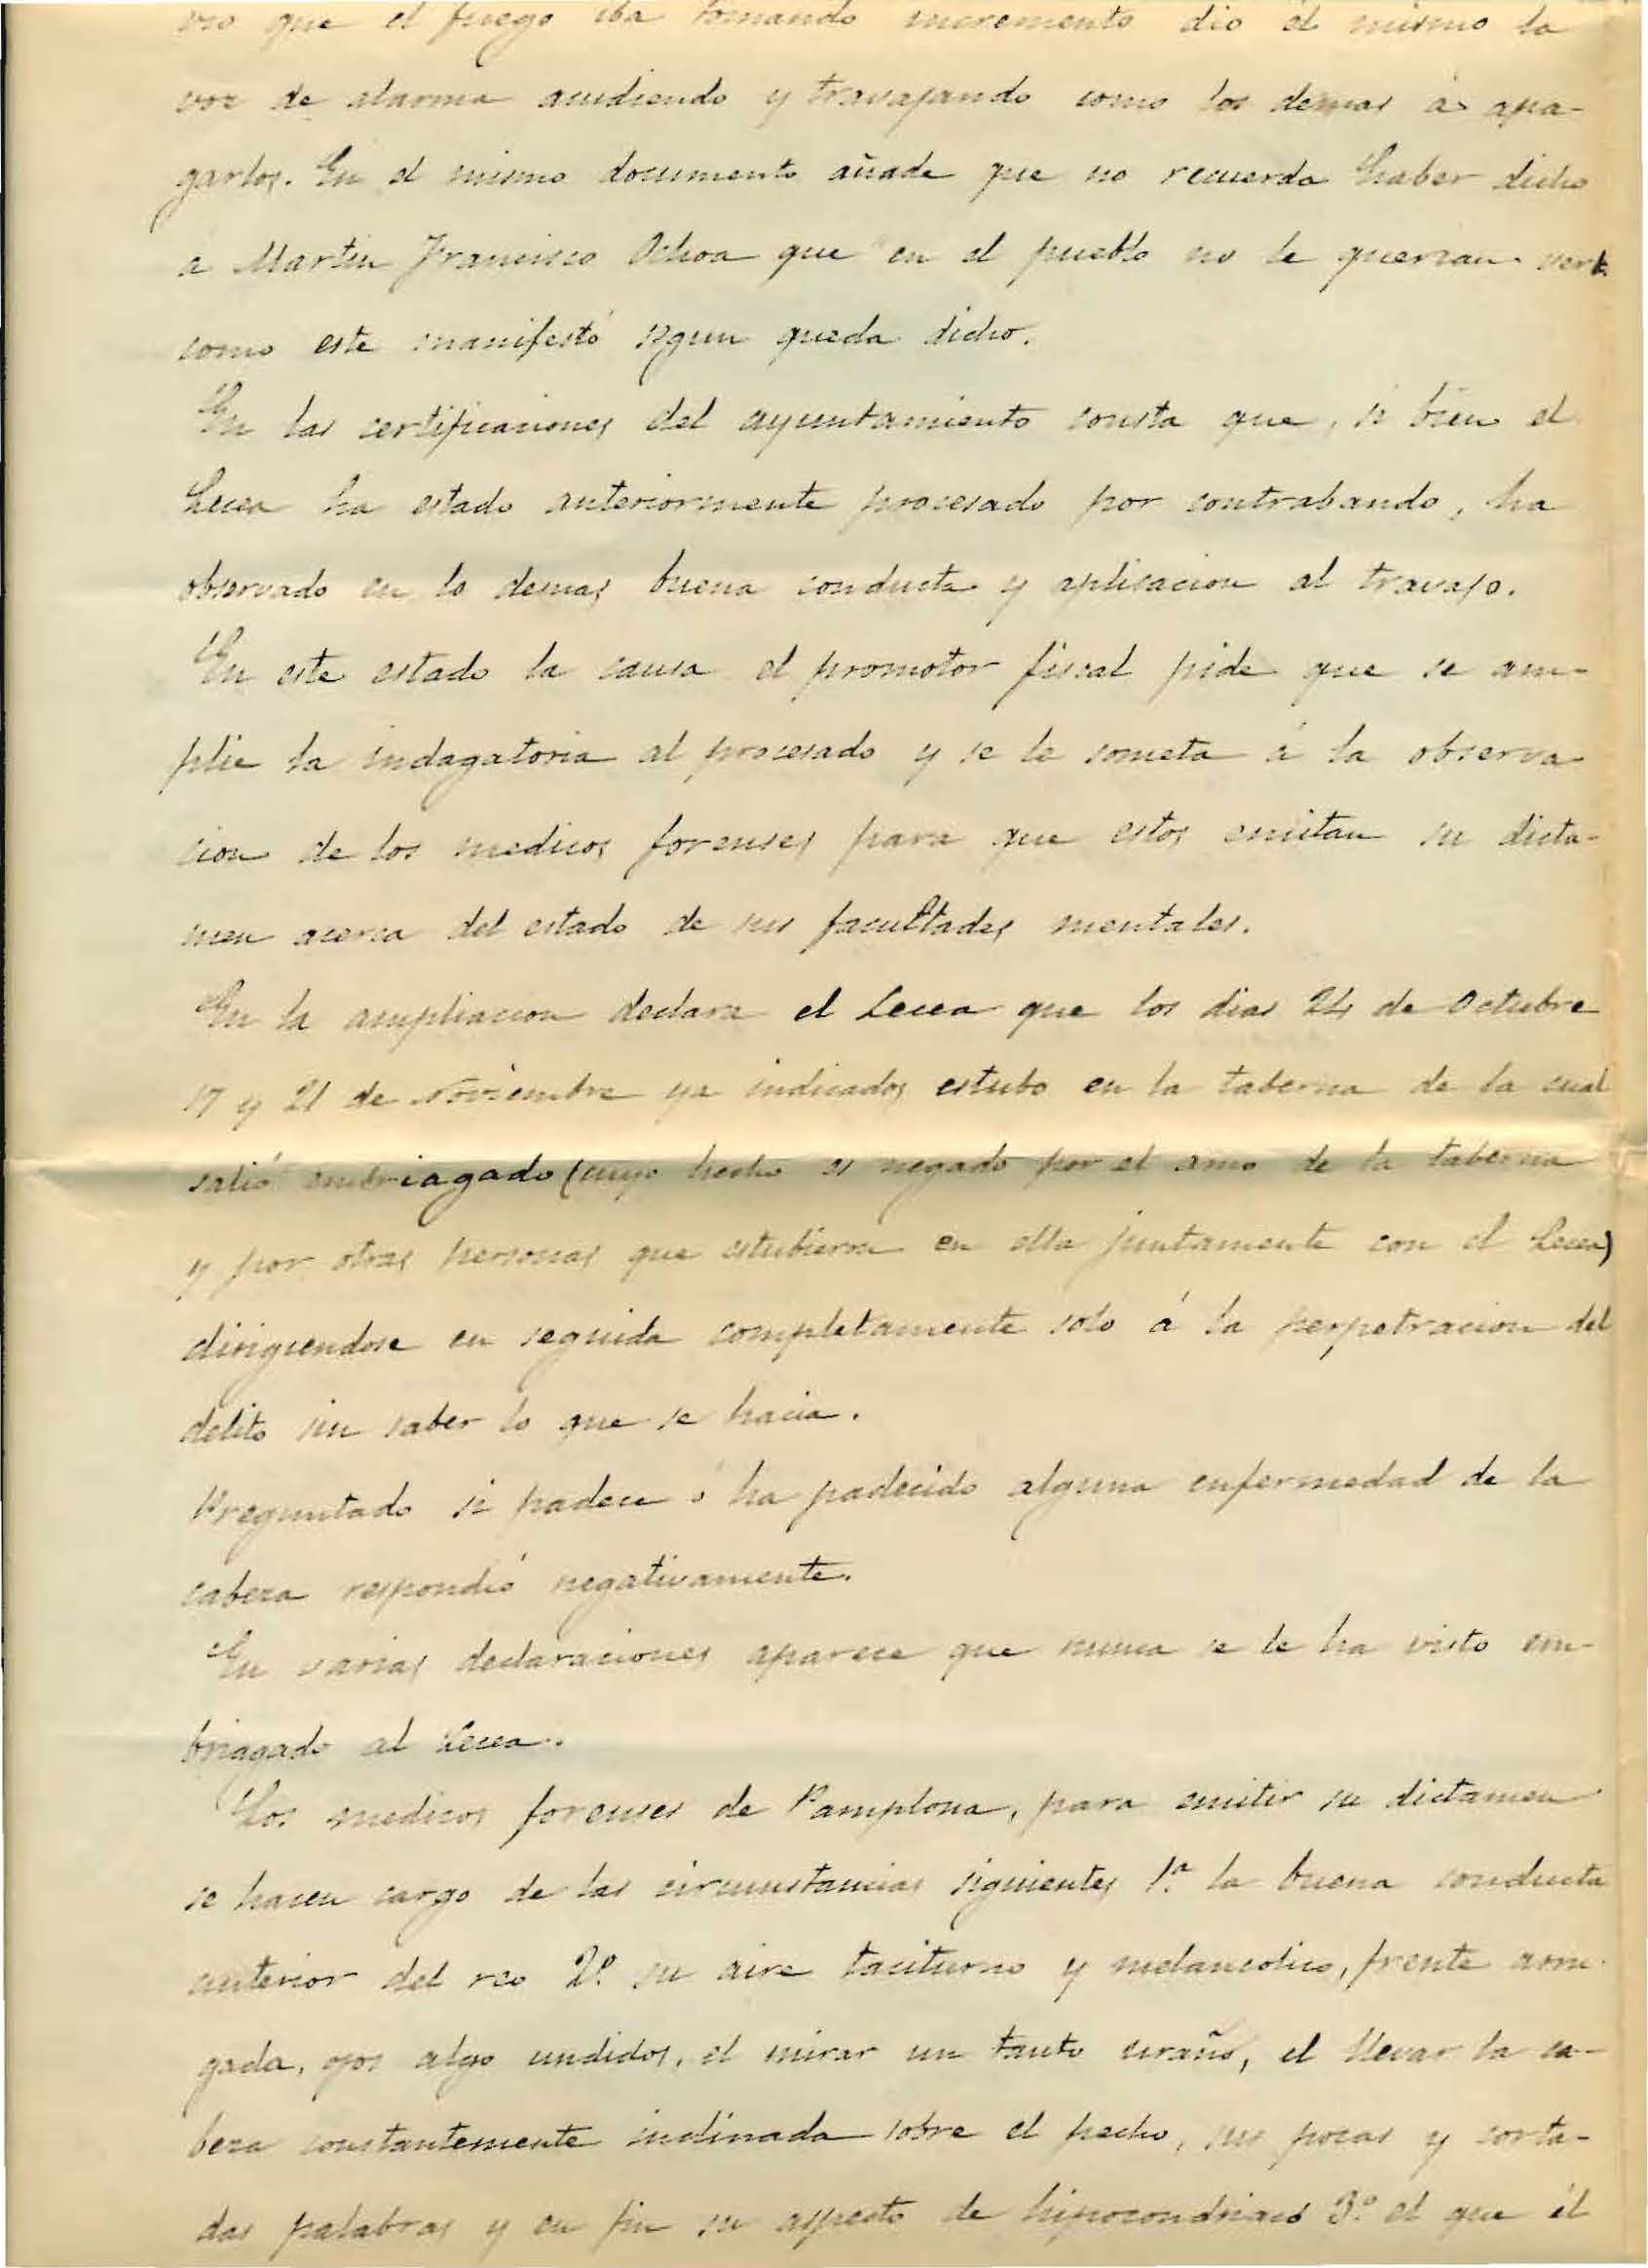 vio que el fuego iba tomando incremento dio él mismo la
voz de alarma acudiendo y travajando como los demas á apa-
garlos. En el mismo documento añade que no recuerda haber dicho
a Martin Francisco Ochoa que en el pueblo no le querian ver
como este manifestó segun queda dicho.
En las certificaciones del ayuntamiento consta que, si bien el
Lecea ha estado anteriormente procesado por contrabando, ha
observado en lo demas buena conducta y aplicacion al travajo.
En este estado la causa el promotor fiscal pide que se am-
plie la indagatoria al procesado y se le someta á la observa-
cion de los medicos forenses para que estos emitan su dicta-
men acerca del estado de sus facultades mentales.
En la ampliacion declara el Lecea que los dias 24 de Octubre
17 y 21 de Noviembre ya indicados estubo en la taberna de la cual
salió embriagado (cuyo hecho es negado por el amo de la taberna
y por otras personas que estubieron en ella juntamente con el Lecea)
dirigiendose en seguida completamente solo á la perpetracion del
delito sin saber lo que se hacia.
Preguntado si padece ó ha padecido alguna enfermedad de la
cabeza respondió negativamente.
En varias declaraciones aparece que nunca se le ha visto em-
briagado al Lecea.
Los medicos forenses de Pamplona, para emitir su dictamen
se hacen cargo de las circunstancias siguientes 1.ª la buena conducta
anterior del reo 2.º su aire taciturno y melancolico, frente arru-
gada, ojos algo undidos, el mirar un tanto uraño, el llevar la ca-
beza constantemente inclinada sobre el pecho, sus pocas y corta-
das palabras y en fin su aspecto de hipocondriaco 3.º el que él